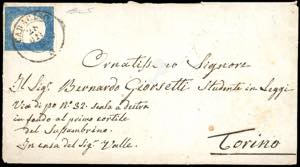 Ornatis.mo Signore
Il Sig.r Bernardo Giorsetti Studente in Leggi
Via di po N° 32. scala a destra
in fondo al primo cortile
del
In casa del Sig.r Valle.
Torino